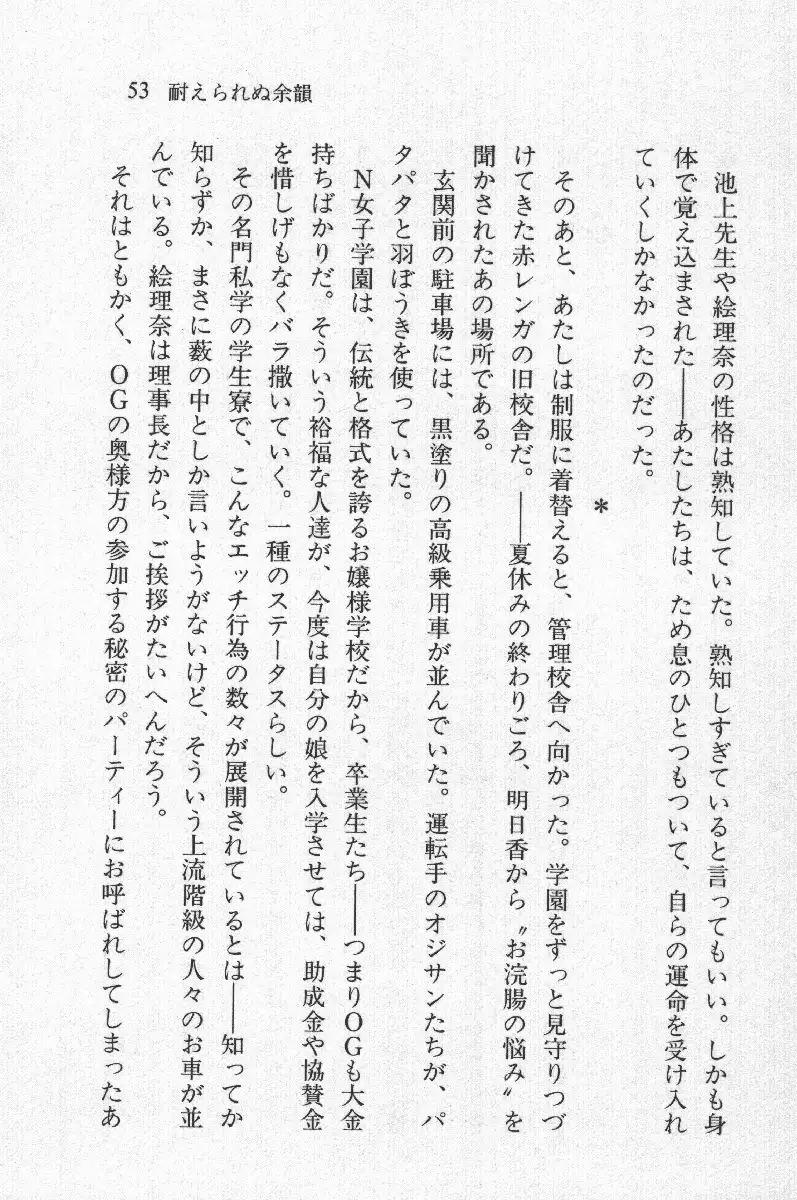 53 耐えられぬ余韻
池上先生や絵理奈の性格は熟知していた。熟知しすぎていると言ってもいい。しかも身
体で覚え込まされた――あたしたちは、ため息のひとつもついて、自らの運命を受け入れ
ていくしかなかったのだった。
＊
そのあと、あたしは制服に着替えると、管理校舎へ向かった。学園をずっと見守りつづ
けてきた赤レンガの旧校舎だ。――夏休みの終わりごろ、明日香から〝お浣腸の悩み〟を
聞かされたあの場所である。
玄関前の駐車場には、黒塗りの高級乗用車が並んでいた。運転手のオジサンたちが、パ
タパタと羽ぼうきを使っていた。
N女子学園は、伝統と格式を誇るお嬢様学校だから、卒業生たち――つまりOGも大金
持ちばかりだ。そういう裕福な人達が、今度は自分の娘を入学させては、助成金や協賛金
を惜しげもなくバラ撒いていく。一種のステータスらしい。
その名門私学の学生寮で、こんなエッチ行為の数々が展開されているとは――知ってか
知らずか、まさに藪の中としか言いようがないけど、そういう上流階級の人々のお車が並
んでいる。絵理奈は理事長だから、ご挨拶がたいへんだろう。
それはともかく、OGの奥様方の参加する秘密のパーティーにお呼ばれしてしまったあ